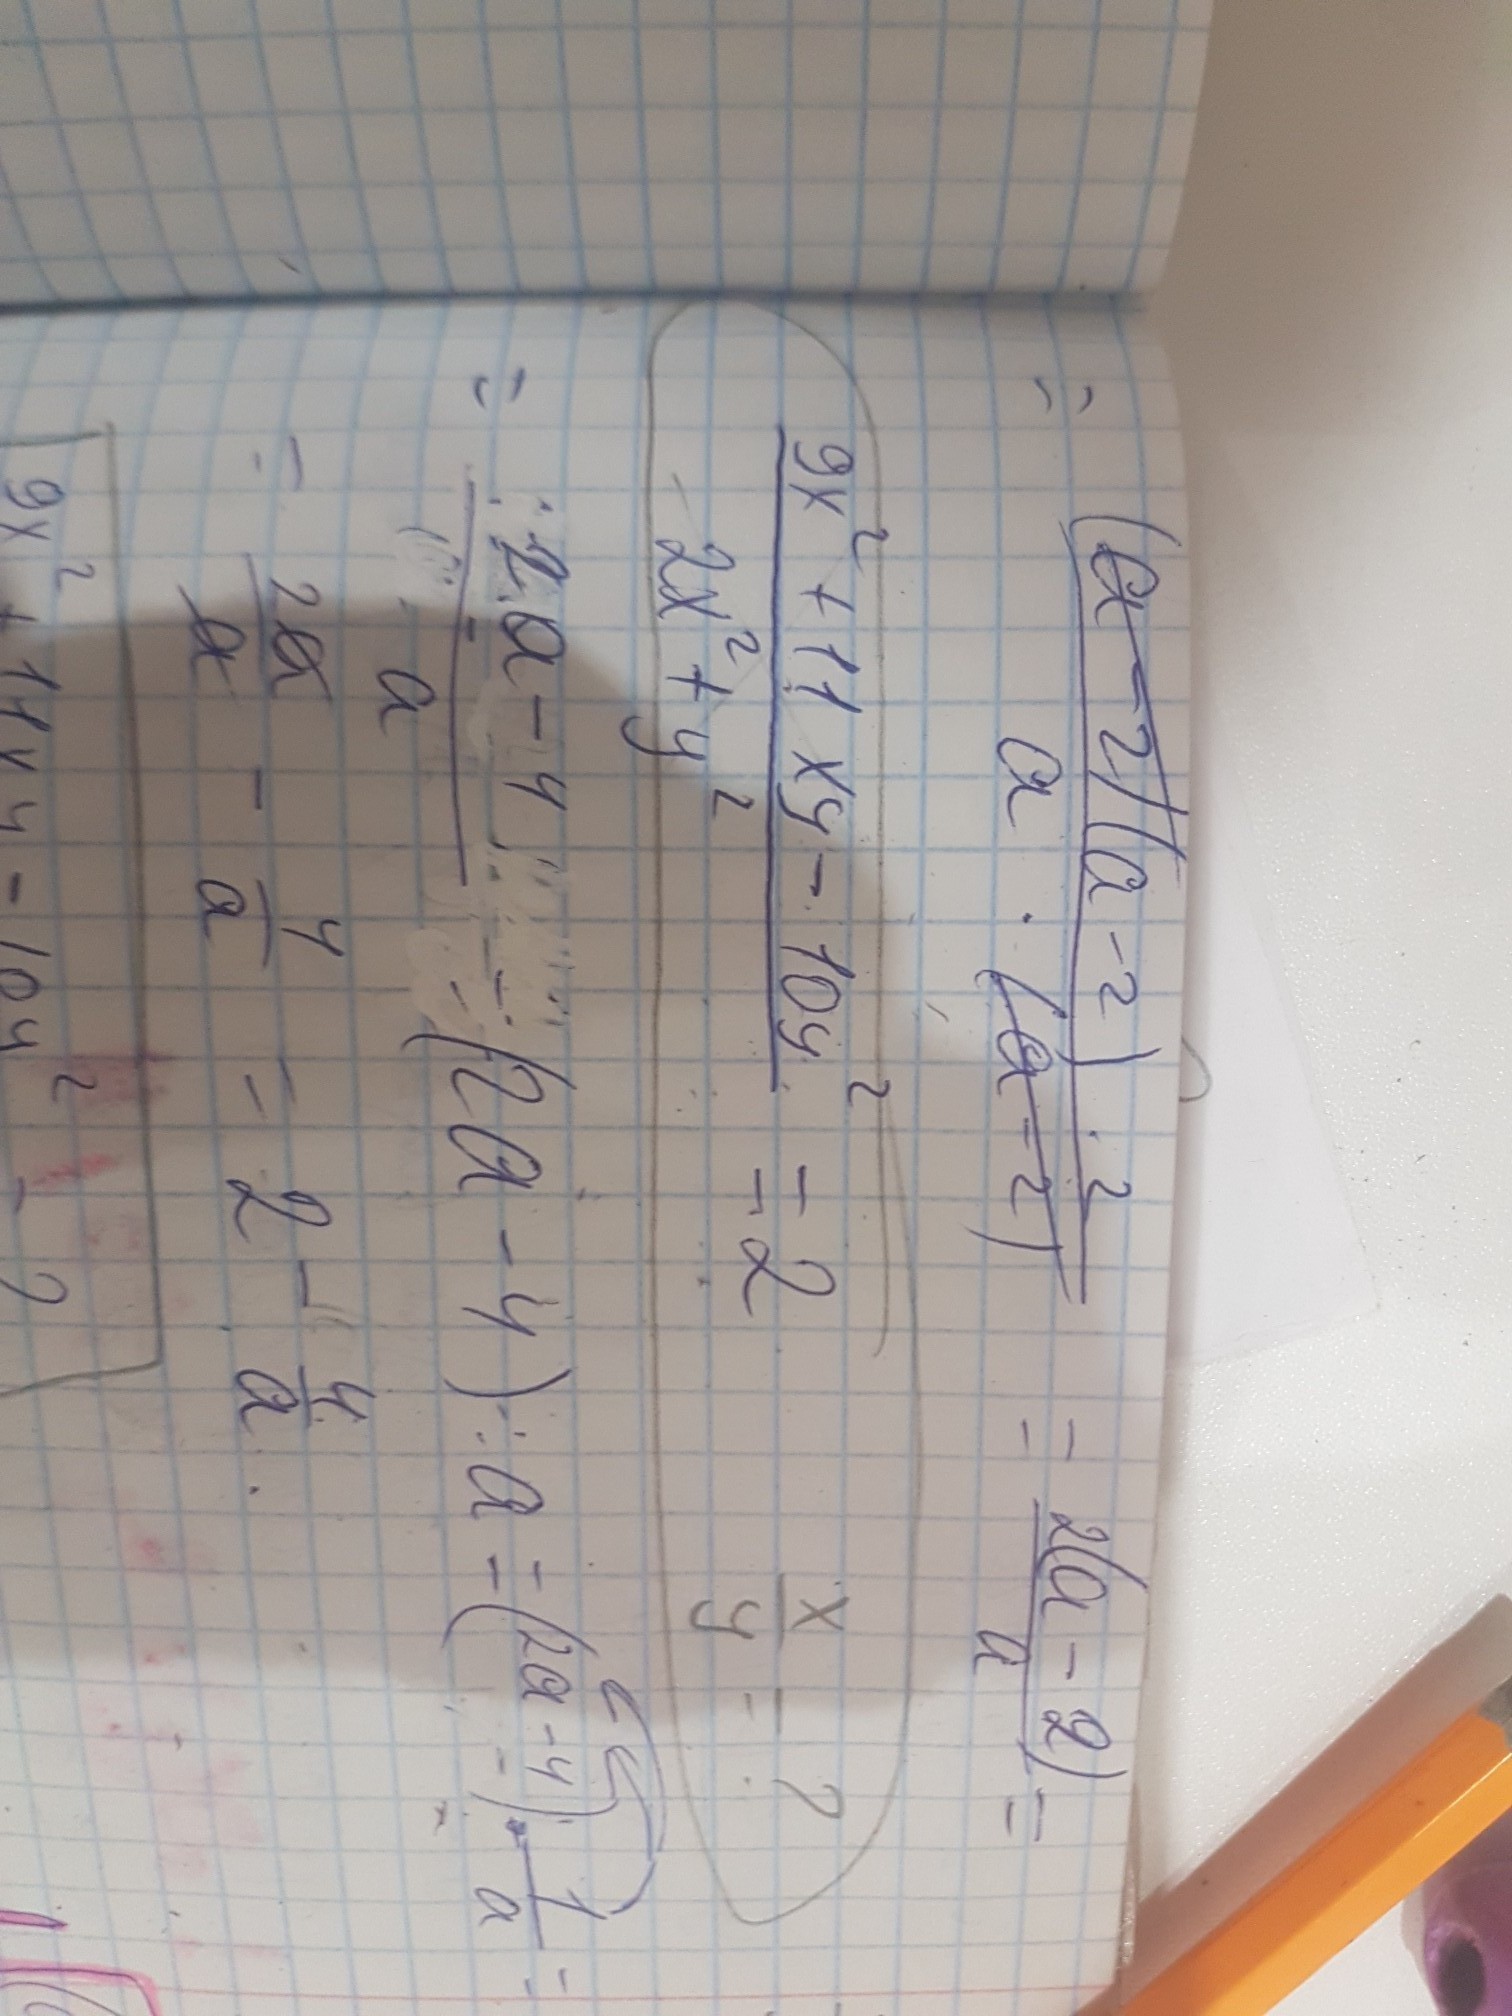 = (a-2)(a-2)·2 / a·(a-2) = 2(a-2) / a =
(9x² + 11xy - 10y²) / (2x² + y²) = 2    x/y = ?
= (2a - 4) / a = (2a - 4) : a = (2a - 4) · 1/a =
= 2a/a - 4/a = 2 - 4/a.
9x² + 11xy - 10y² = 2